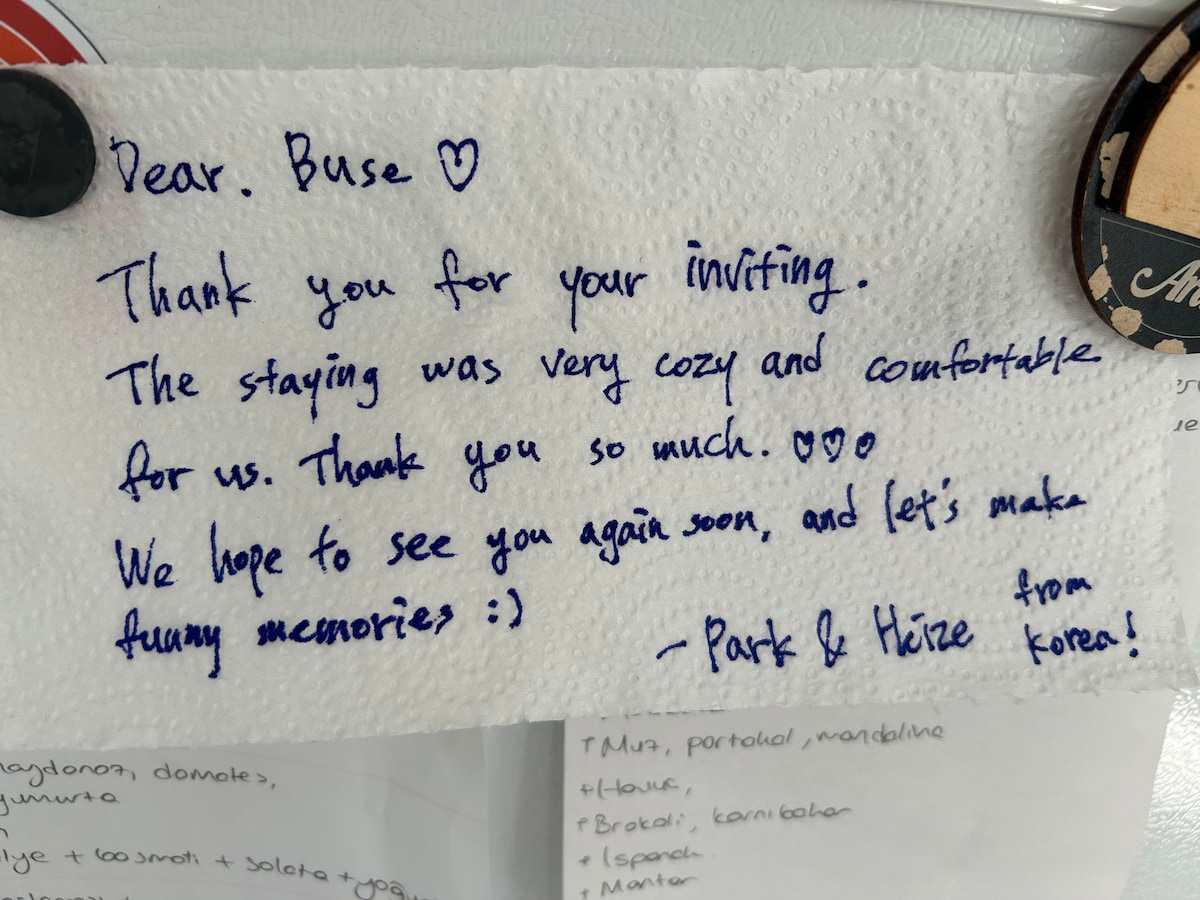 Dear. Buse ♡
Thank you for your inviting.
The staying was very cozy and comfortable
for us. Thank you so much. ♡♡♡
We hope to see you again soon, and let's make
funny memories :)
- Park & Heize from
Korea!
maydonoz, domates,
yumurta
+ basmati + salata + yoğu
+ Muz, portakal, mandalina
+ Havuc,
+ Brokoli, karnibahar
+ Ispanak
+ Mantar